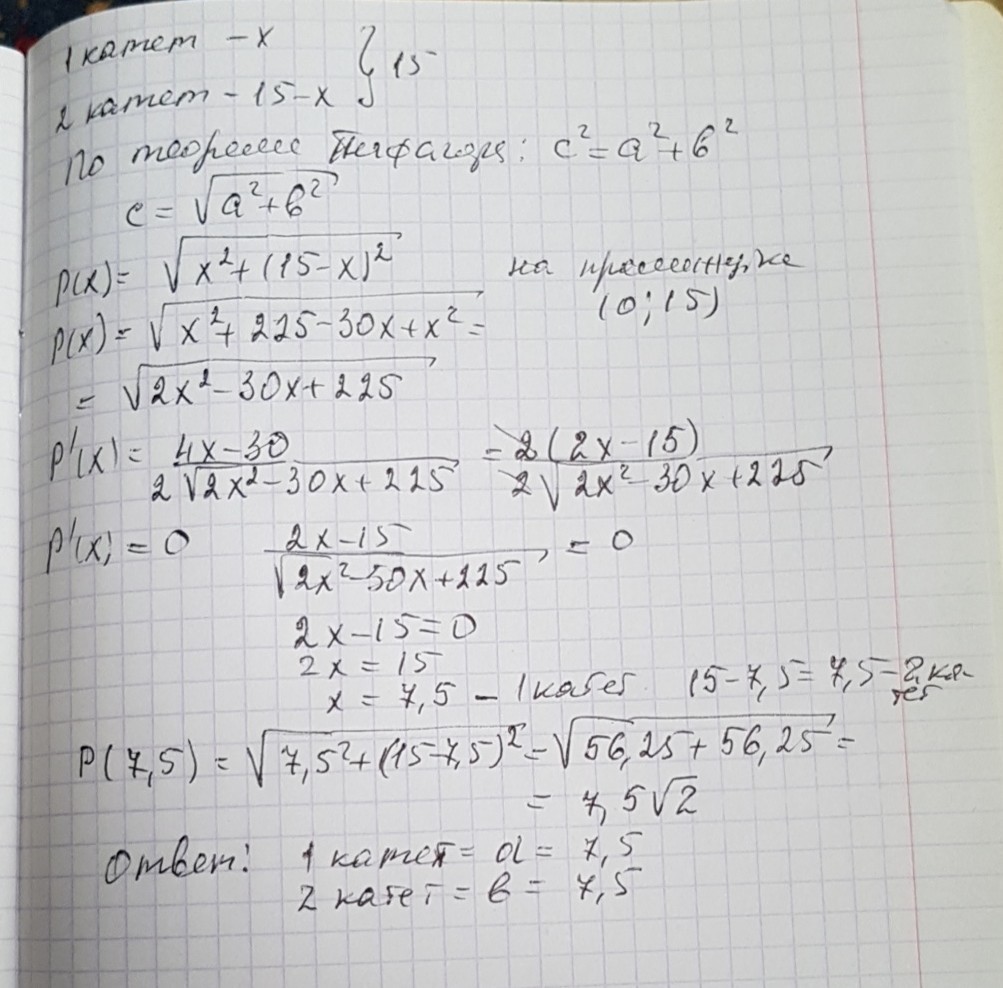 1 катет - x } 15
2 катет - 15-x
По теореме Пифагора: c²=a²+b²
c = √(a²+b²)
P(x) = √(x²+(15-x)²) на промежутке
(0;15)
P(x) = √(x²+225-30x+x²) =
= √(2x²-30x+225)
P'(x) = (4x-30)/(2√(2x²-30x+225)) = 2(2x-15)/(2√(2x²-30x+225))
P'(x) = 0 (2x-15)/√(2x²-50x+225) = 0
2x-15=0
2x = 15
x = 7,5 - 1 катет 15-7,5=7,5-2 ка-
тет
P(7,5) = √(7,5²+(15-7,5)²) = √(56,25+56,25) =
= 7,5√2
Ответ: 1 катет = a = 7,5
2 катет = b = 7,5